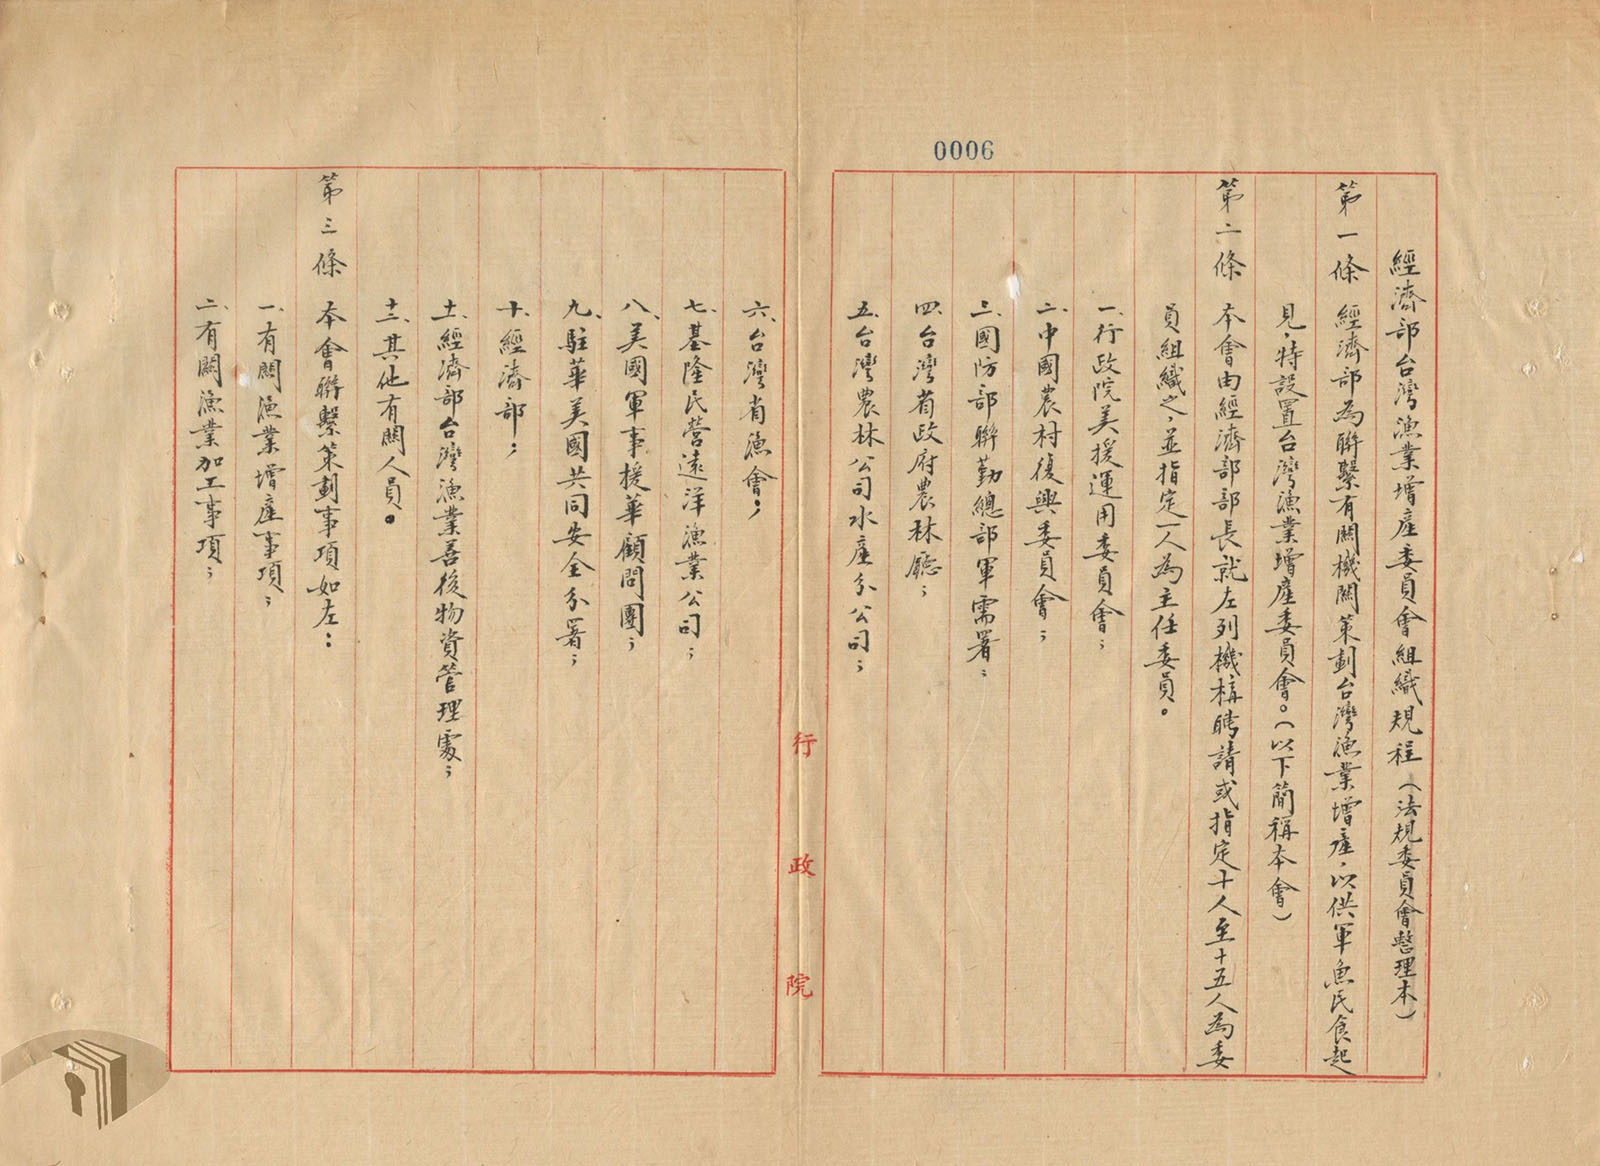 0006
經濟部台灣漁業增產委員會組織規程（法規委員會整理本）
第一條　經濟部為聯繫有關機關策劃台灣漁業增產，以供軍魚民食起
見，特設置台灣漁業增產委員會。（以下簡稱本會）
第二條　本會由經濟部部長就左列機構聘請或指定十人至十五人為委
員組織之，並指定一人為主任委員。
一、行政院美援運用委員會；
二、中國農村復興委員會；
三、國防部聯勤總部軍需署；
四、台灣省政府農林廳；
五、台灣農林公司水產分公司；
行政院
六、台灣省漁會；
七、基隆民營遠洋漁業公司；
八、美國軍事援華顧問團；
九、駐華美國共同安全分署；
十、經濟部；
十一、經濟部台灣漁業善後物資管理處；
十二、其他有關人員。
第三條　本會聯繫策劃事項如左：
一、有關漁業增產事項；
二、有關漁業加工事項；